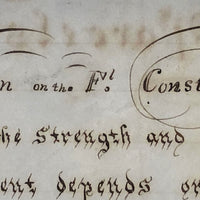 n on the. F^l. Const
he Strength and
ent depends gr